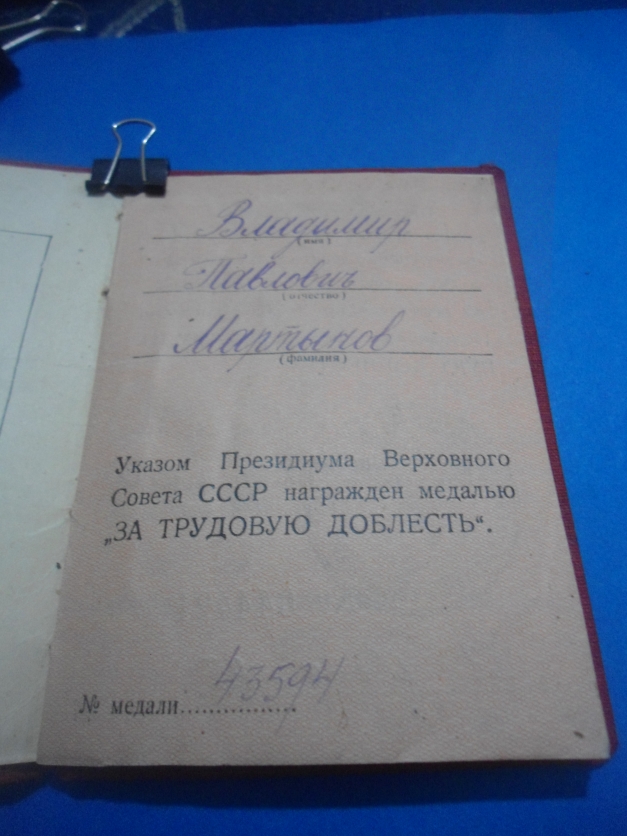 Владимир
(имя)
Павловичъ
(отчество)
Мартынов
(фамилия)
Указом Президиума Верховного
Совета СССР награжден медалью
„ЗА ТРУДОВУЮ ДОБЛЕСТЬ“.
№ медали 43594